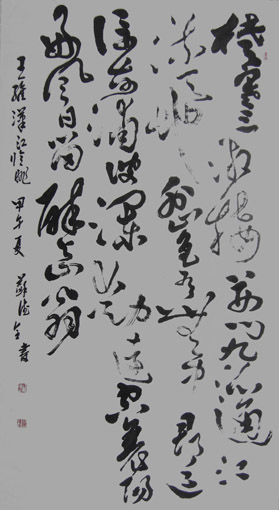 楚塞三湘接荆门九派通江
流天地外山色有無中郡邑
浮前浦波瀾动遠空襄陽
好风日留醉与山翁
王維漢江临眺 甲午夏 書